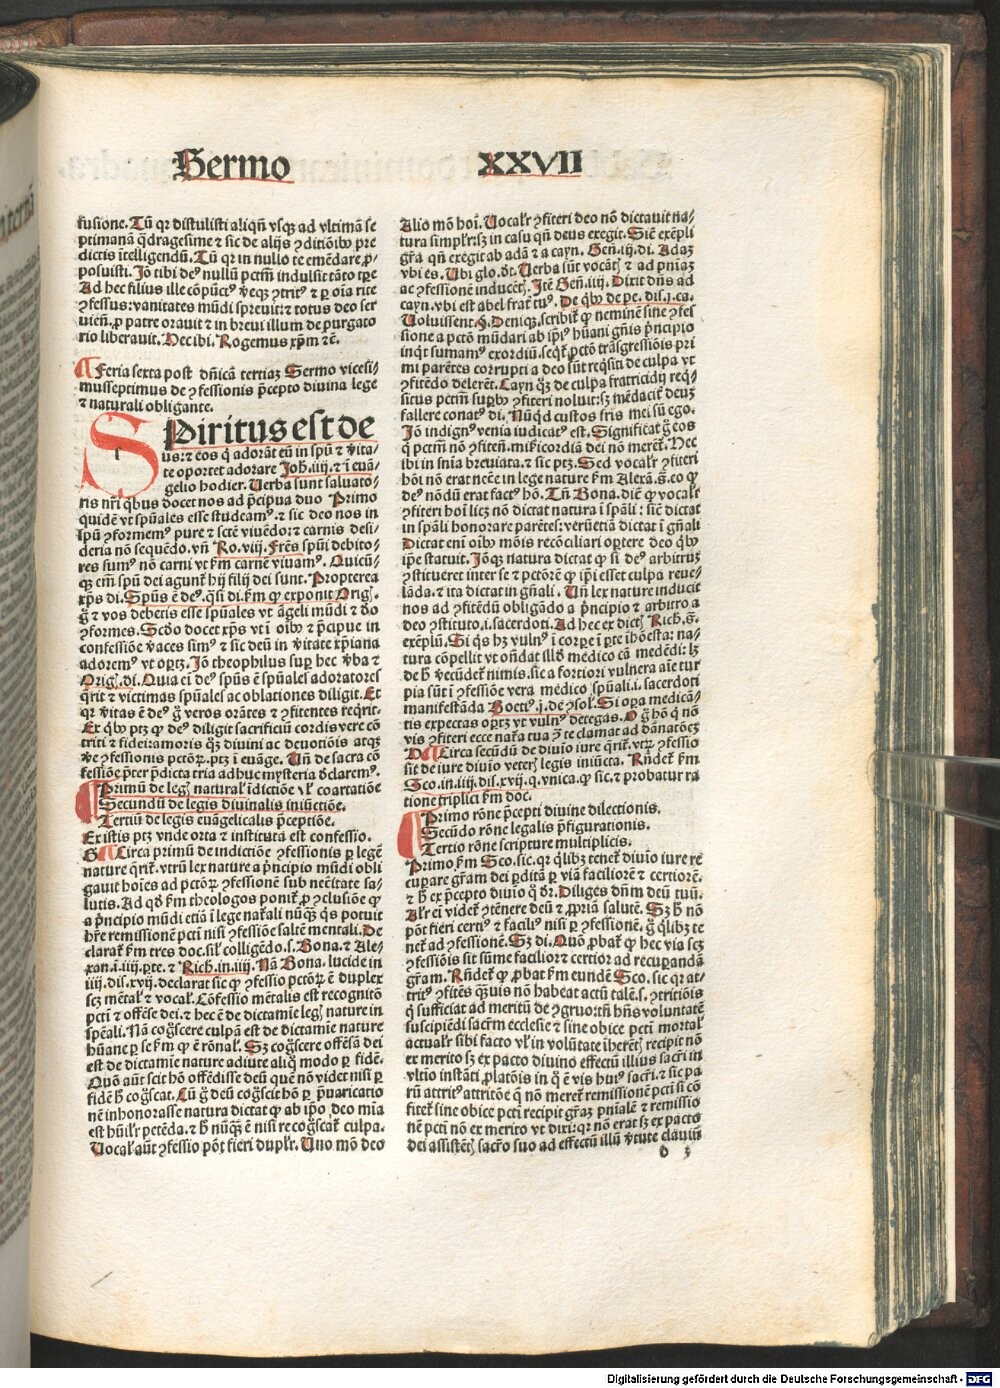 Sermo XXVII
fusione. Tū qz distulisti aliqn̄ vsqz ad vltimā se
ptimanā q̄dragesime ⁊ sic de alijs ꝯditiōibꝰ pre
dictis ītelligendū. Tū qr in nullo te emēdare ꝓ⸗
posuisti. Jō tibi deꝰ nullū pctm̄ indulsit tāto tpe
Ad hec filius ille cōpūctꝰ veqz ꝯtritꝰ ⁊ ꝑ oīa rite
ꝯfessus: vanitates mūdi spreuit: ⁊ totus deo ser
uien̄. ꝓ patre orauit ⁊ in breui illum de purgato
rio liberauit. Hec ibi. Rogemus xp̄m ⁊c̄.
Feria sexta post dn̄icā tertiaz Sermo vicesi⸗
musseptimus de ꝯfessionis p̄cepto diuina lege
⁊ naturali obligante.
Spiritus est de
us: ⁊ eos q̄ adorāt eū in spū ⁊ v̄ita⸗
te oportet adorare Joh̄. iiij. ⁊ ī euā⸗
gelio hodier. Verba sunt saluato⸗
ris nr̄i q̄bus docet nos ad p̄cipua duo Primo
quidē vt spūales esse studeamꝰ. ⁊ sic deo nos in
spū ꝯformemꝰ pure ⁊ sctē viuēdo: ⁊ carnis desi⸗
deria nō sequēdo. vn̄ Ro. viij. Frēs spūi debito⸗
res sumꝰ nō carni vt ẜm carnē viuamꝰ. Quicū⸗
qz em̄ spū dei agunt̄ hij filij dei sunt. Propterea
xp̄s di. Spūs ē deꝰ. q̄si di. ẜm ꝙ exponit Oriḡ.
ḡ ⁊ vos debetis esse spūales vt āgeli mūdi ⁊ deo
ꝯformes. Scdo docet xp̄s vt ī oībꝰ ⁊ p̄cipue in
confessiōe v̄aces simꝰ ⁊ sic deū in v̄itate xp̄iana
adoremꝰ vt oportz. Jō theophilus suꝑ hec v̄ba ⁊
Oriḡ. di. Quia ei deꝰ spūs ē spūales adoratores
q̄rit ⁊ victimas spūales ac oblationes diligit. Et
qr v̄itas ē deꝰ ḡ veros orātes ⁊ ꝯfitentes req̄rit.
Ex qbꝰ ptz ꝙ deꝰ diligit sacrificiū cordis vere cō
triti ⁊ fidei: amoris qz diuini ac deuotiōis atqz
v̄e ꝯfessionis pctōꝝ. ptz ī euāge. Un̄ de sacra cō
fessiōe p̄ter p̄dicta tria adhuc mysteria d̄claremꝰ.
Primū de leg̃ natural̓ īdictiōe vl̓ coartatiōe
Secundū de legis diuinalis iniūctiōe.
Tertiū de legis euāgelicalis p̄ceptiōe.
Ex istis ptz vnde orta ⁊ instituta est confessio.
Circa primū de indictiōe ꝯfessionis ꝑ legē
nature q̄rit̄. vtrū lex nature a p̄ncipio mūdi obli
gauit hoīes ad pctōꝝ ꝯfessionē sub nec̄itate sa⸗
lutis. Ad qd̓ ẜm theologos ponit̄ ꝓ ꝯclusiōe ꝙ
a p̄ncipio mūdi etiā ī lege nat̄ali nūqz q̄s potuit
hr̄e remissionē pcti nisi ꝯfessiōe saltē mentali. De
clarat̄ ẜm tres doc. sil̓ colligēdo. s. Bona. ⁊ Ale⸗
xan. ī. iiij. ꝑte. ⁊ Rich. in. iiij. Nā Bona. lucide in
iiij. dis. xvij. declarat sic ꝙ ꝯfessio pctōꝝ ē duplex
scz mētal̓ ⁊ vocal̓. Cōfessio mētalis est recognitō
pcti ⁊ offēse dei. ⁊ hec ē de dictamie leg̃ nature in
sp̄ali. Nā cog̃scere culpā est de dictamie nature
hūane ꝑ se ẜm ꝙ ē rōnal̓. Sz cog̃scere offēsā dei
est de dictamie nature adiute aliq̄ modo ꝑ fidē.
Quō aūt scit hō offēdisse deū quē nō videt nisi ꝑ
fidē h̄ cog̃scat. Cū ḡ deū cog̃scit hō ꝑ p̄uaricatio
nē inhonorasse natura dictat ꝙ ab ip̄o deo mīa
est hūilr̄ petēda. ⁊ h̄ nūqz ē nisi recog̃scat̄ culpa.
Uocal̓ aūt ꝯfessio pōt̄ fieri duplr̄. Uno mō deo
Alio mō hoī. Uocalr̄ ꝯfiteri deo nō dictauit na⸗
tura simplr̄: sz in casu qn̄ deus exegit. Sic̄ exēpli
gr̄a qn̄ exegit ab adā ⁊ a cayn. Gen̄. iij. di. Adaz
vbi es. Ubi glo. dt̄. Uerba sūt vocāt̄ ⁊ ad pn̄iaz
ac ꝯfessionē inducēt̄. Jtē Gen̄. iiij. Dixit dn̄s ad
cayn. vbi est abel frat̄ tuꝰ. De qbꝰ de pe. dis. j. ca.
Uoluissent. q̄. Deniqz. scribit̄ ꝙ neminē sine ꝯfes
sione a pctō mūdari ab ip̄iꝰ hūani gn̄is p̄ncipio
inqt sumamꝰ exordiū. seqt̄ pctō trāsgressiōis pri
mi parētes corrupti a deo sūt reqsiti de culpa vt
ꝯfitēdo delerēt. Cayn qz de culpa fratricidij req⸗
situs pctm̄ suꝑbꝰ ꝯfiteri noluit: sz mēdacit̄ deuz
fallere conatꝰ di. Nūqd custos fr̄is mei sū ego.
Jō indignꝰ venia iudicatꝰ est. Significat̄ ḡ eos
q̄ pctm̄ nō ꝯfiten̄. misericordiā dei nō meret̄. Hec
ibi in sn̄ia breuiata. ⁊ sic ptz. Sed vocalr̄ ꝯfiteri
hōi nō erat nec̄e in lege nature ẜm Alexā. s̄. eo ꝙ
deꝰ nōdū erat factꝰ hō. Tn̄ Bona. dic̄ ꝙ vocalr̄
ꝯfiteri hoī licz nō dictat natura ī sp̄ali: sic̄ dictat
in sp̄ali honorare parētes: verūetiā dictat ī gn̄ali
Dictat eni oībꝰ mōis recōciliari oꝑtere deo qbꝰ
ip̄e statuit. Jōqz natura dictat ꝙ si deꝰ arbitruz
ꝯstitueret inter se ⁊ pctōrē ꝙ ip̄i esset culpa reue⸗
lāda. ⁊ ita dictat in gn̄ali. Un̄ lex nature inducit
nos ad ꝯfitēdū obligādo a p̄ncipio ⁊ arbitro a
deo ꝯstituto. i. sacerdoti. Ad hec ex dict̄ Rich. s̄.
exēplū. Si q̄s hz vulnꝰ ī corpe ī ꝑte ihōesta: na⸗
tura cōpellit vt on̄dat illd̓ medico cā medēdi: lz
de h̄ v̄ecūdet̄ nimis. sic a fortiori vulnera aīe tur
pia sūt ī ꝯfessiōe vera medico spūali. i. sacerdoti
manifestāda Boetiꝰ. j. de ꝯsol̓. Si oꝑa medicā⸗
tis expectas oportz vt vulnꝰ detegas. O ḡ hō q̄ nō
vis ꝯfiteri ecce nat̄a tua ꝯ te clamat ad dānatōez
Circa secūdū de diuīo iure q̄rit̄. vtꝝ ꝯfessio
sit de iure diuīo veter̄ legis iniūcta. Rn̄det̄ ẜm
Sco. in. iiij. dis. xvij. q. vnica. ꝙ sic. ⁊ probatur ra
tione triplici ẜm doc.
Primo rōne p̄cepti diuine dilectionis.
Secūdo rōne legalis p̄figurationis.
Tertio rōne scripture multiplicis.
Primo ẜm Sco. sic. qr q̄libz tenet̄ diuīo iure re
cuꝑare gr̄am dei ꝑditā ꝑ viā faciliorē ⁊ certiorē.
⁊ h̄ ex p̄cepto diuīo q̄ dr̄. Diliges dn̄m deū tuū.
Alr̄ ei videt̄ ꝯtēnere deū ⁊ ꝓpriā salutē. Sz h̄ nō
pōt fieri certiꝰ ⁊ faciliꝰ nisi ꝑ ꝯfessionē. ḡ q̄libz te
net̄ ad ꝯfessionē. Sz di. Quō ꝓbat̄ ꝙ hec via scz
ꝯfessiōis sit sūme facilior ⁊ certior ad recuꝑandā
gr̄am. Rn̄det̄ ꝙ ꝓbat ẜm eundē Sco. sic qr at⸗
tritꝰ ꝯfitēs q̄uis nō habeat actū talē. s. ꝯtritiōis
q̄ sufficiat ad meritū de ꝯgruo: tn̄ hn̄s voluntatē
suscipiēdi sacr̄m ecclesie ⁊ sine obice pcti mortal̓
actualr̄ sibi facto vl̓ in volūtate iherēt̄ recipit nō
ex merito sz ex pacto diuino effectū illius sacr̄i in
vltio instāti ꝓlatōis in q̄ ē vis huiꝰ sacr̄i. ⁊ sic pa
rū attritꝰ attritōe q̄ nō meret̄ remissionē pcti si cō
fitet̄ sine obice pcti recipit gr̄az pn̄ialē ⁊ remissio
nē pcti nō ex merito vt dixi: qz nō erat sz ex pacto
dei assistēt̄ sacr̄o suo ad effectū illū v̄tute clauiū
Digitalisierung gefördert durch die Deutsche Forschungsgemeinschaft - DFG